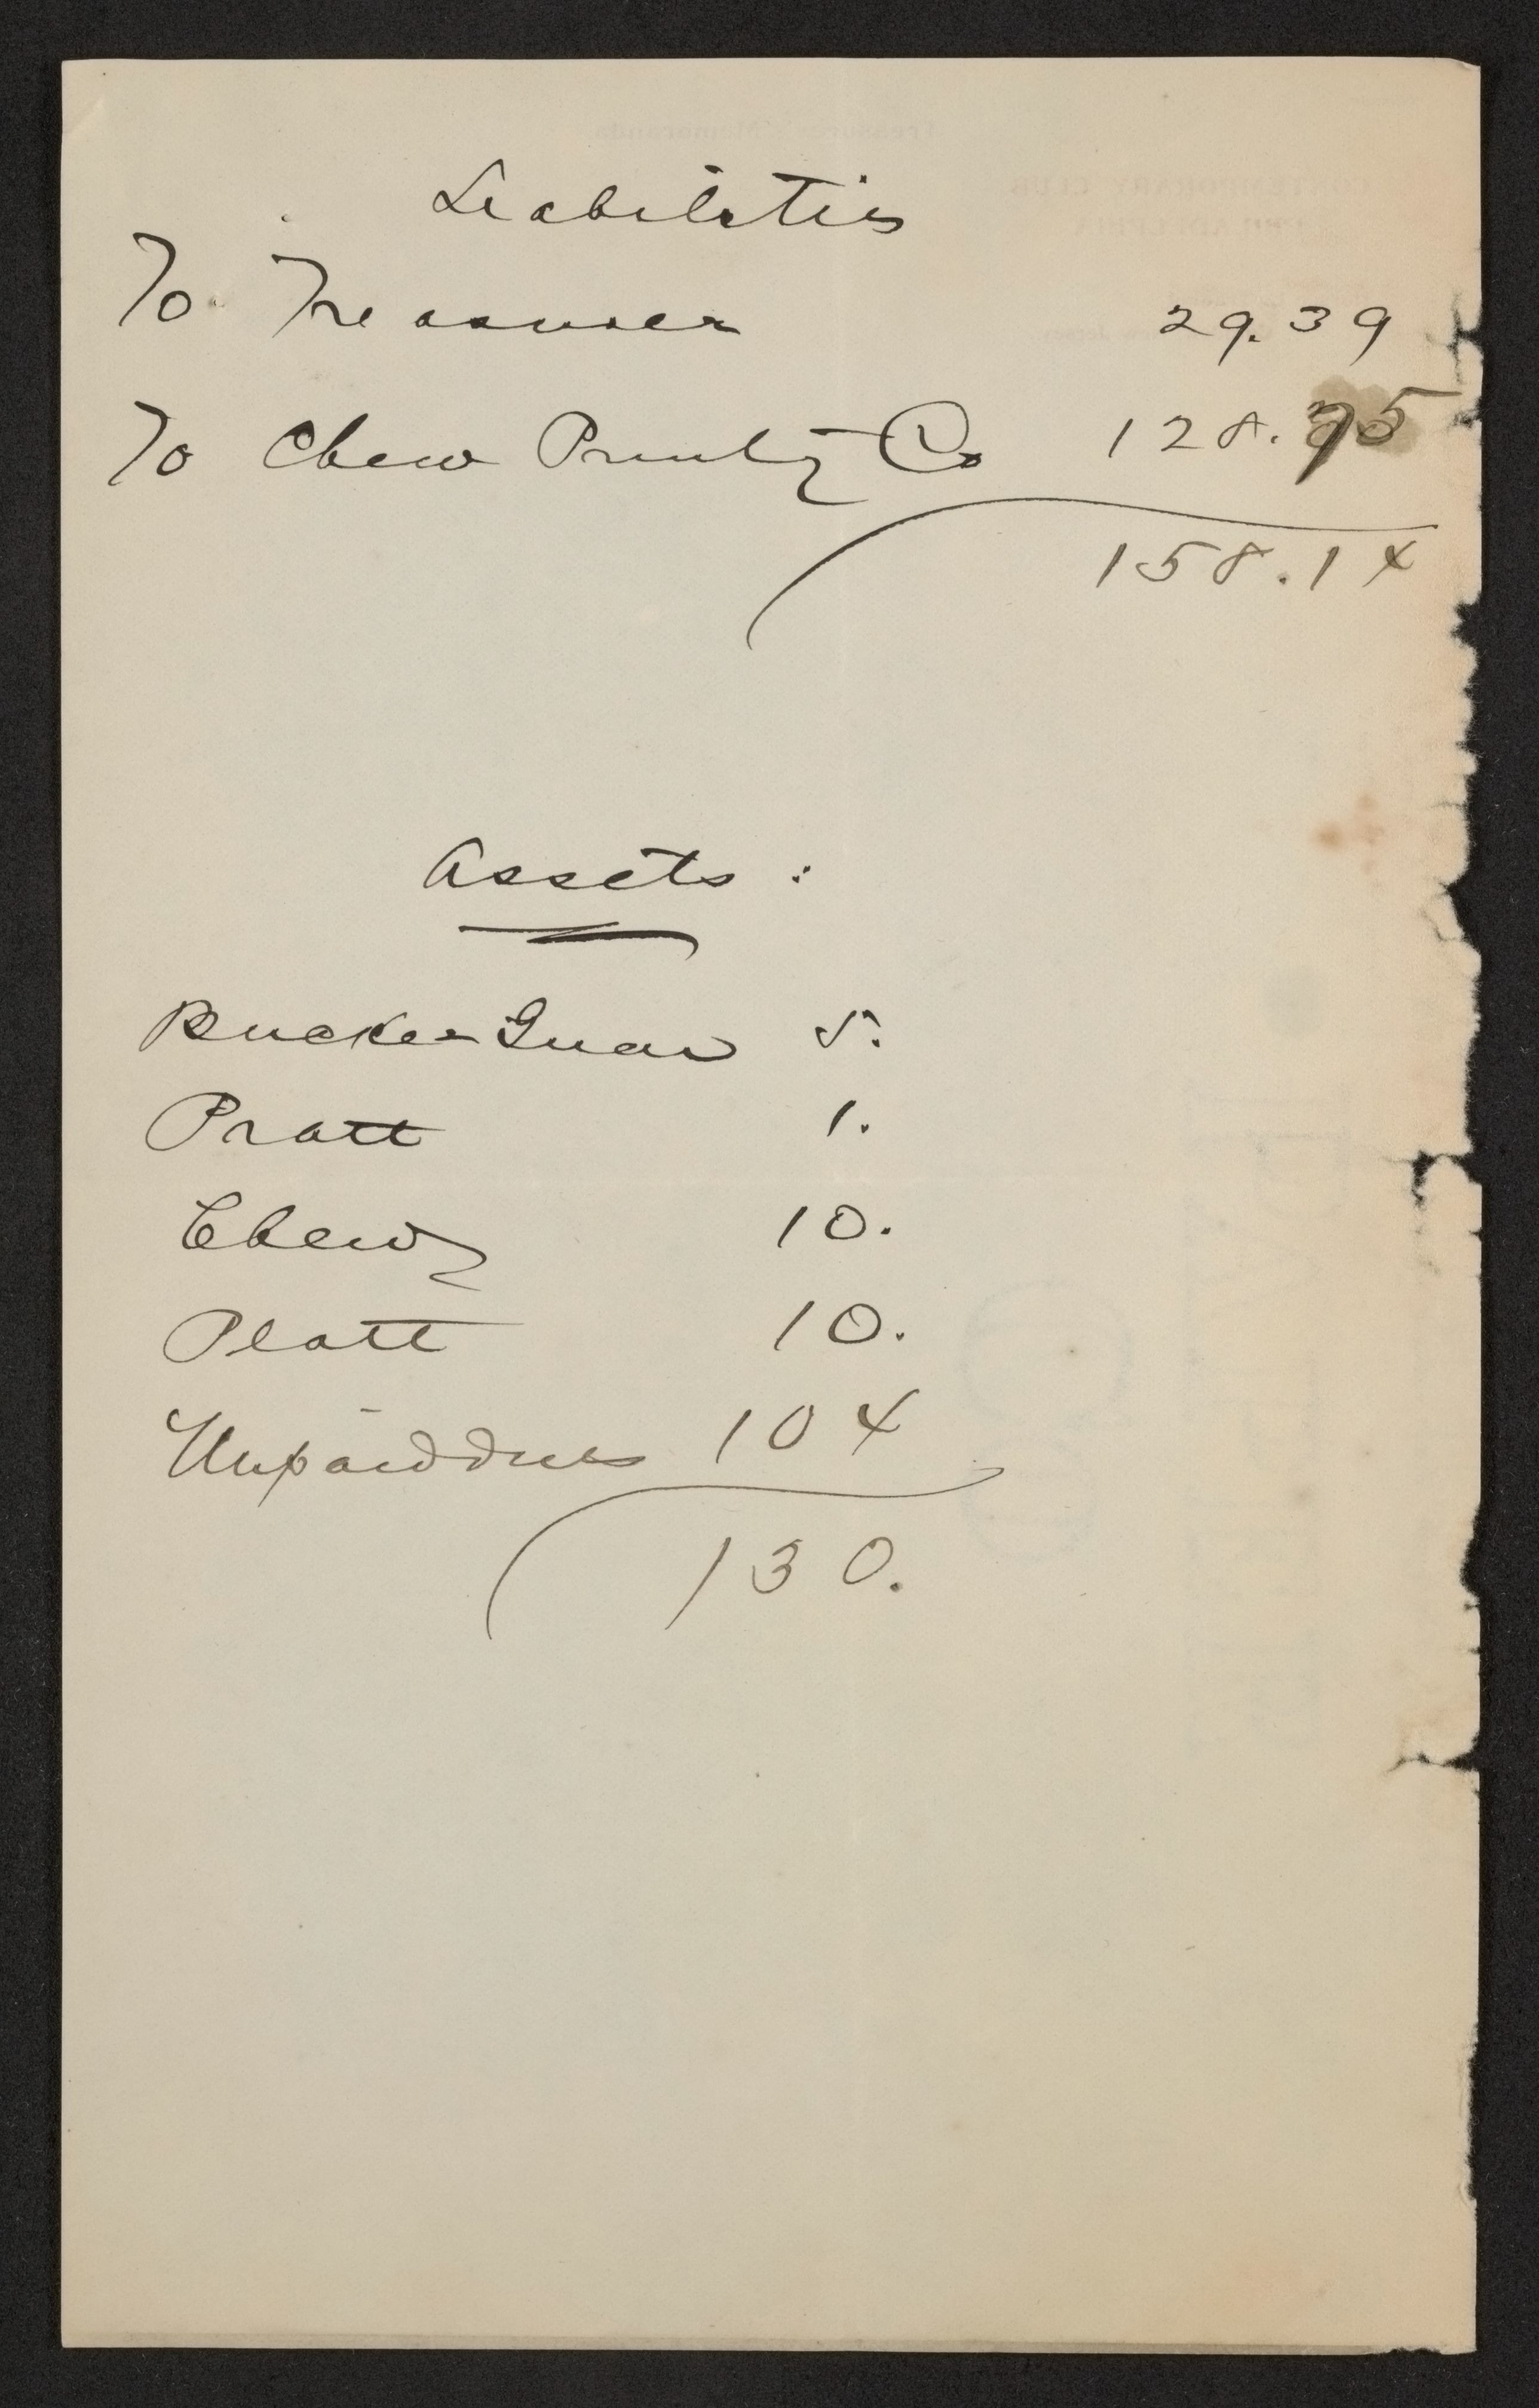 Liabilities
To Treasurer 29.39
To Chew Printg Co 128.75
158.14
Assets :
Bucke 5.
Pratt 1.
Chew 10.
Platt 10.
Unpaid dues 104
130.